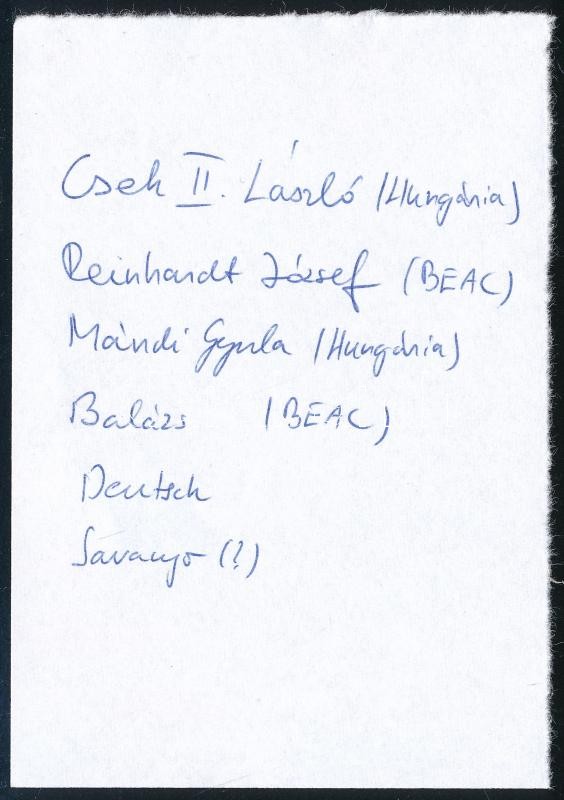 Cseh II. László (Hungária)
Reinhardt József (BEAC)
Mándi Gyula (Hungária)
Balázs (BEAC)
Deutsch
(?)